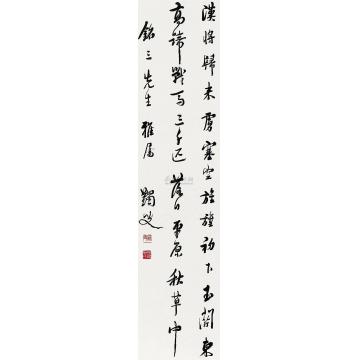 漢將歸來虜塞空旌旗初下玉關東
高蹄戰馬三千匹落日平原秋草中
銘三先生雅屬 鞠叟